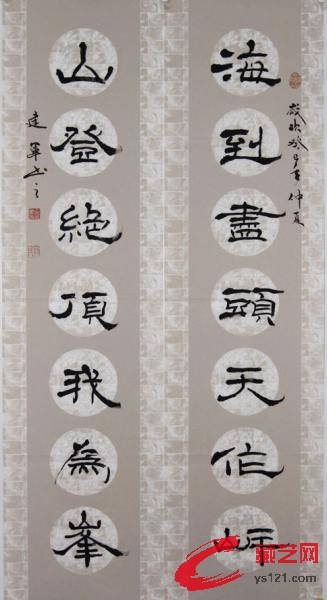 海到盡頭天作岸
歲次癸巳年仲夏
山登絶頂我為峯
建軍書之
艺网
ys121.com